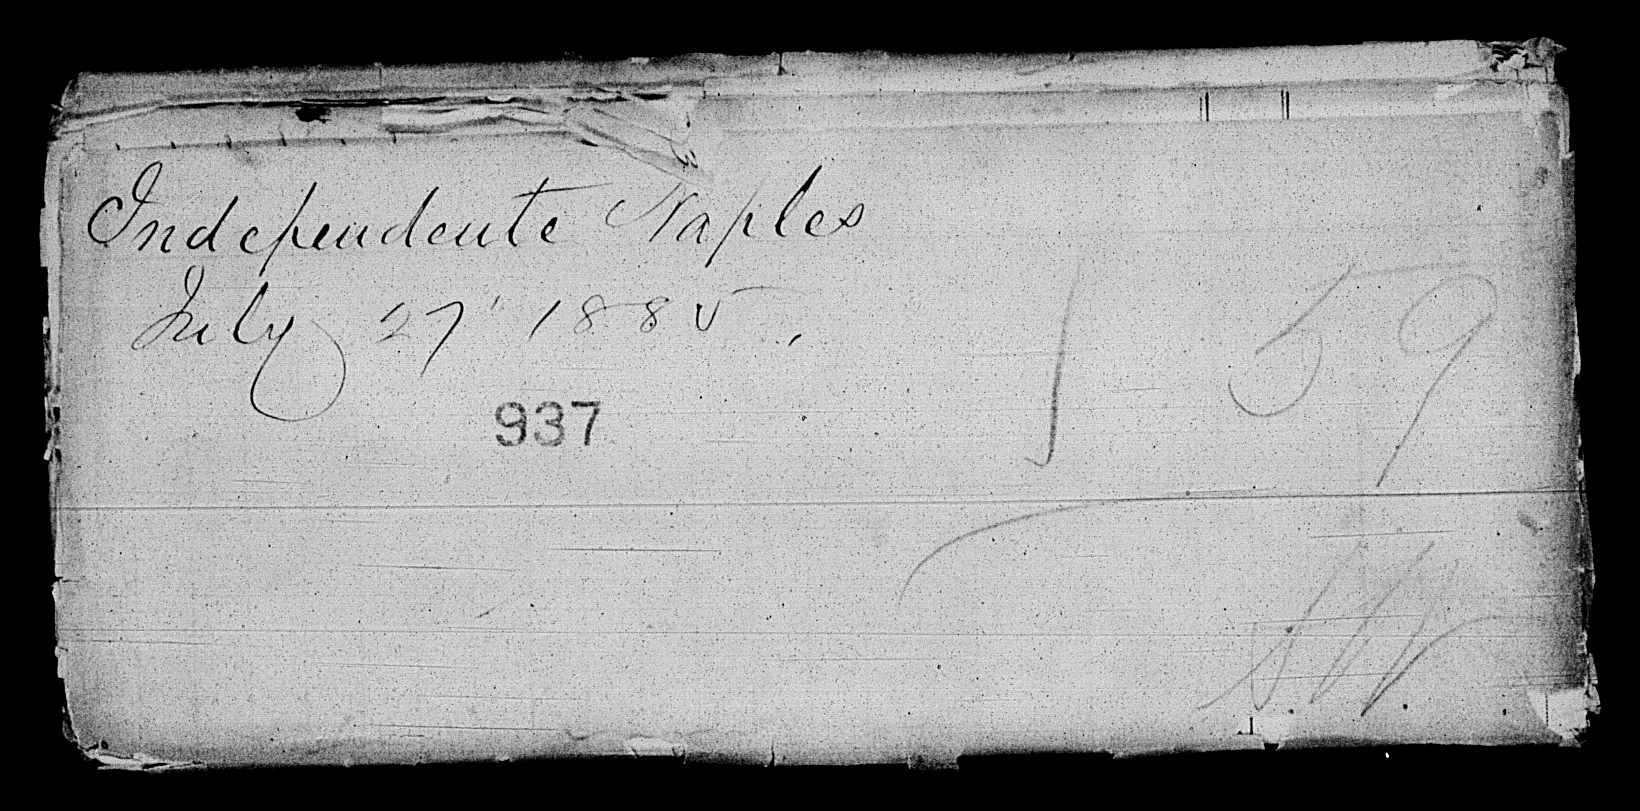 Independente Naples
July 27' 1885.
937
1 59